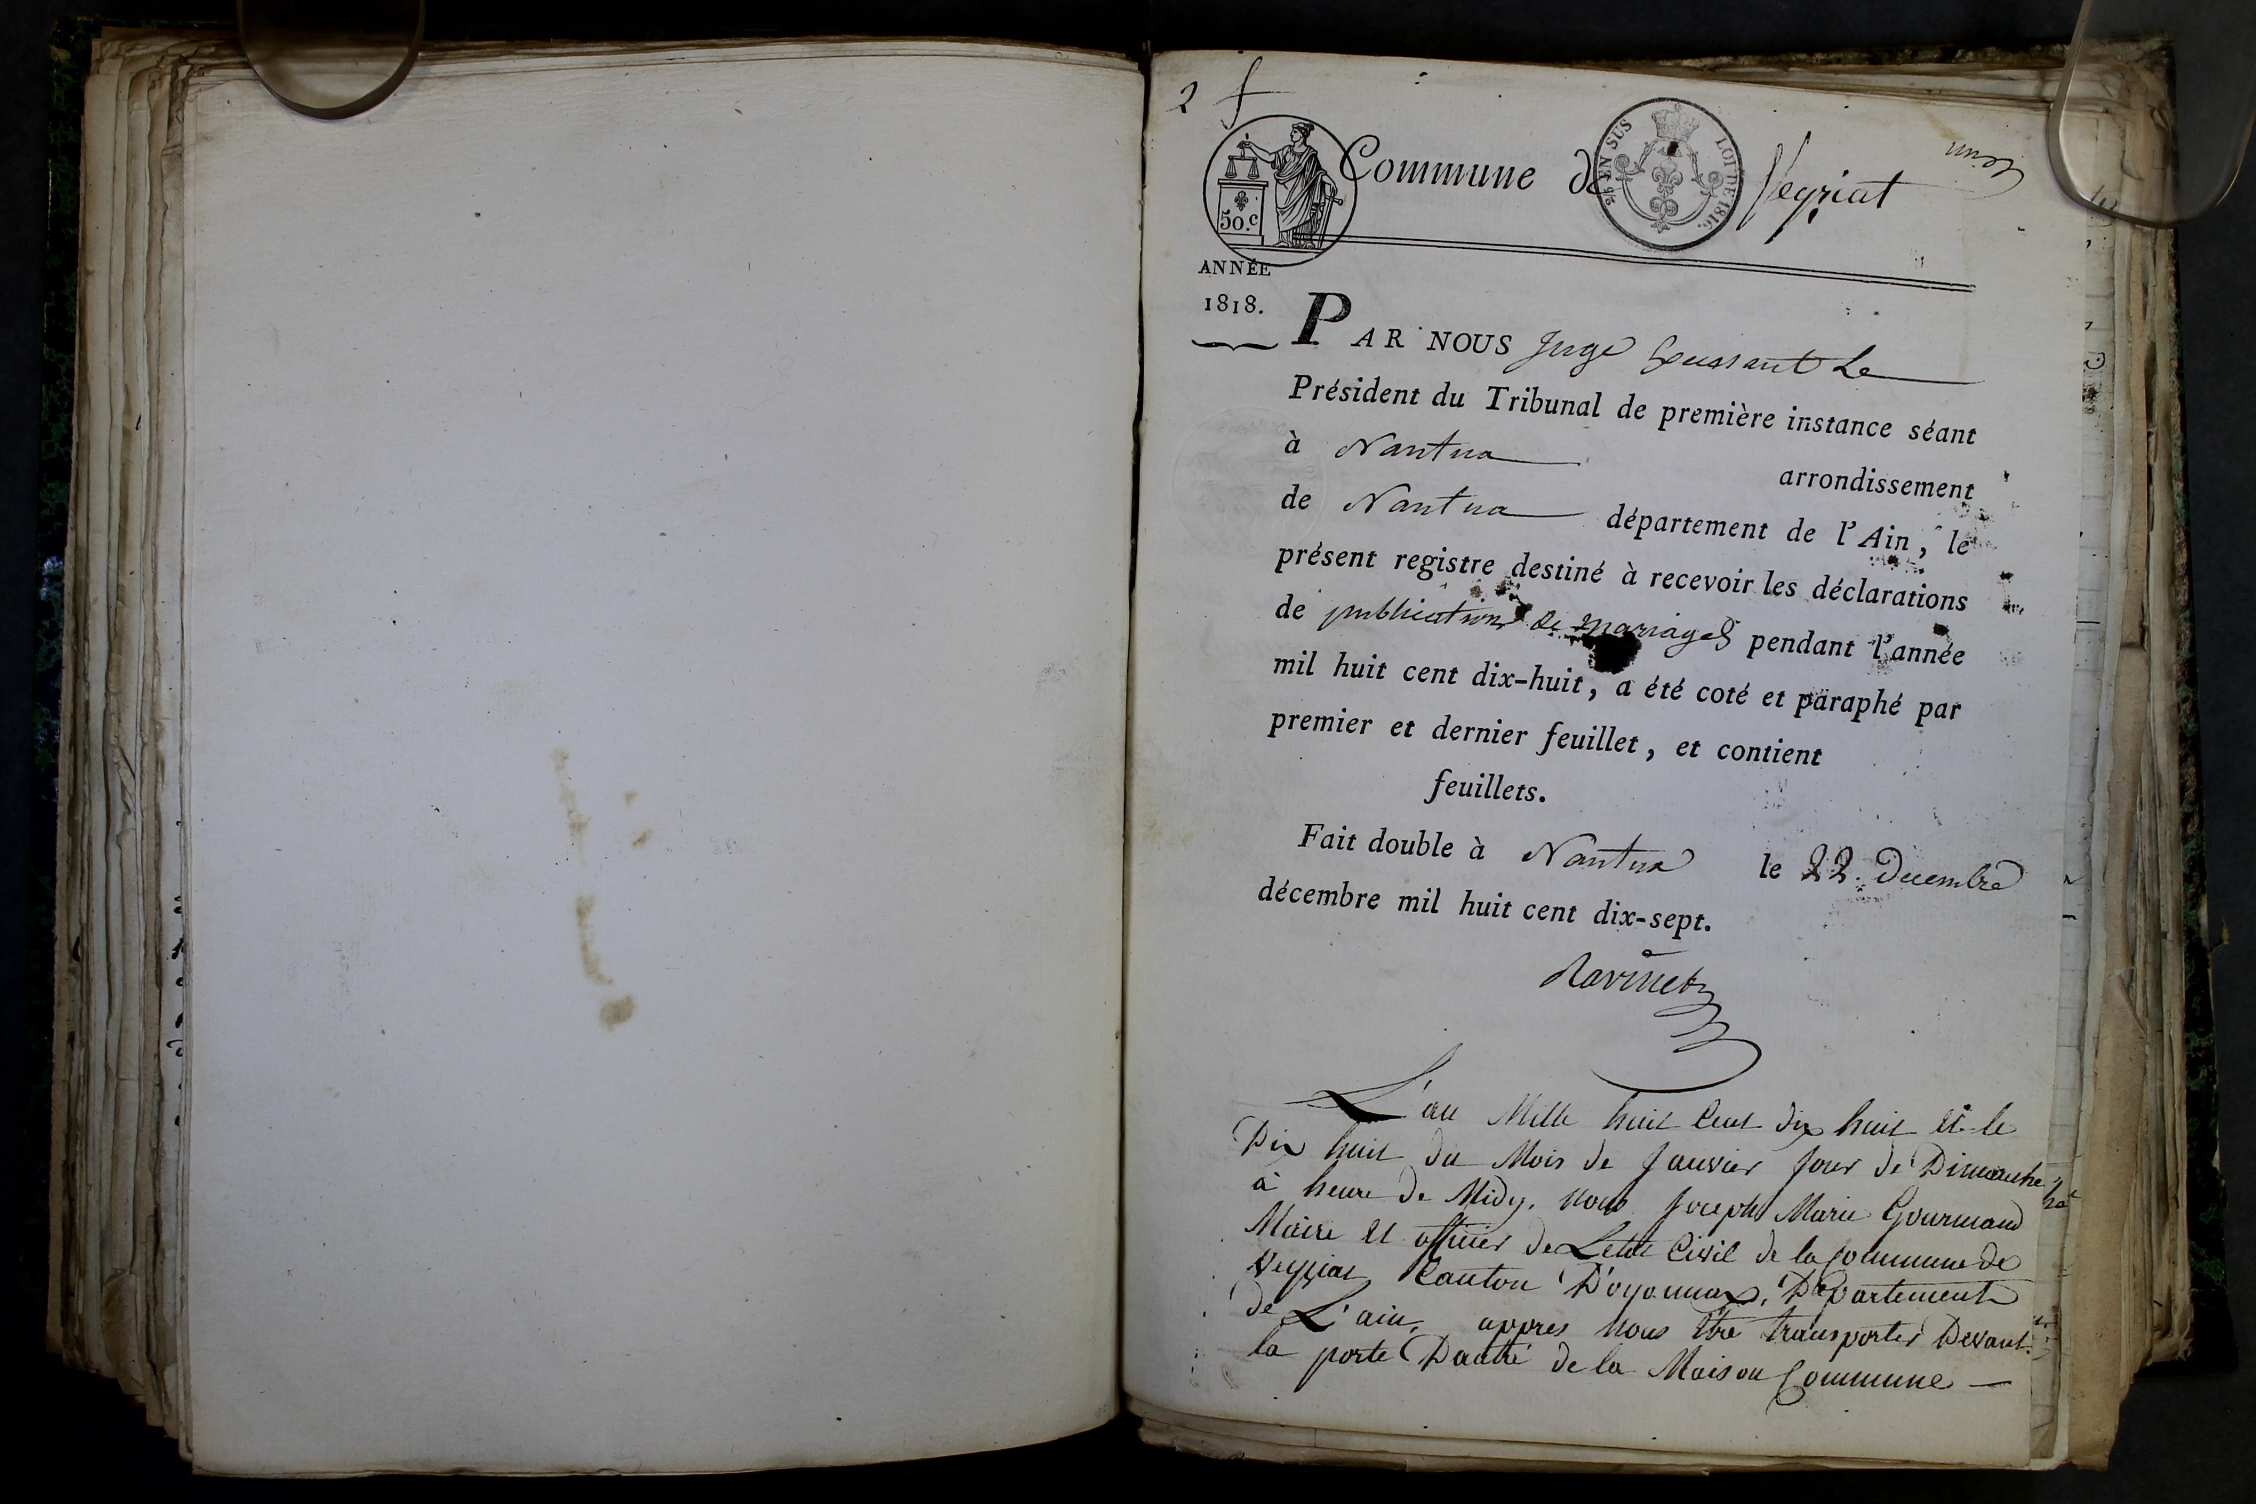 2 f
Commune de Veyriat
50.c
2/5 EN SUS
LOI DE 1816.
ANNÉE
1818.
PAR NOUS Juge Le
Président du Tribunal de première instance séant
à Nantua arrondissement
de Nantua département de l'Ain, le
présent registre destiné à recevoir les déclarations
de publications de mariages pendant l'année
mil huit cent dix-huit, a été coté et paraphé par
premier et dernier feuillet, et contient
feuillets.
Fait double à Nantua le 22. Decembre
décembre mil huit cent dix-sept.
Ravinet
L'an Mille huit Cent dix huit et le
Dix huit du Mois de Janvier Jour de Dimanche
à heure de Midy. nous Joseph Marie Gourmand
Maire et officier de Letat Civil de la Commune de
Veyriat Canton D'oyonnax, Departement
de L'ain, appres nous etre transporter Devant
la porte Dantré de la Maison Commune —